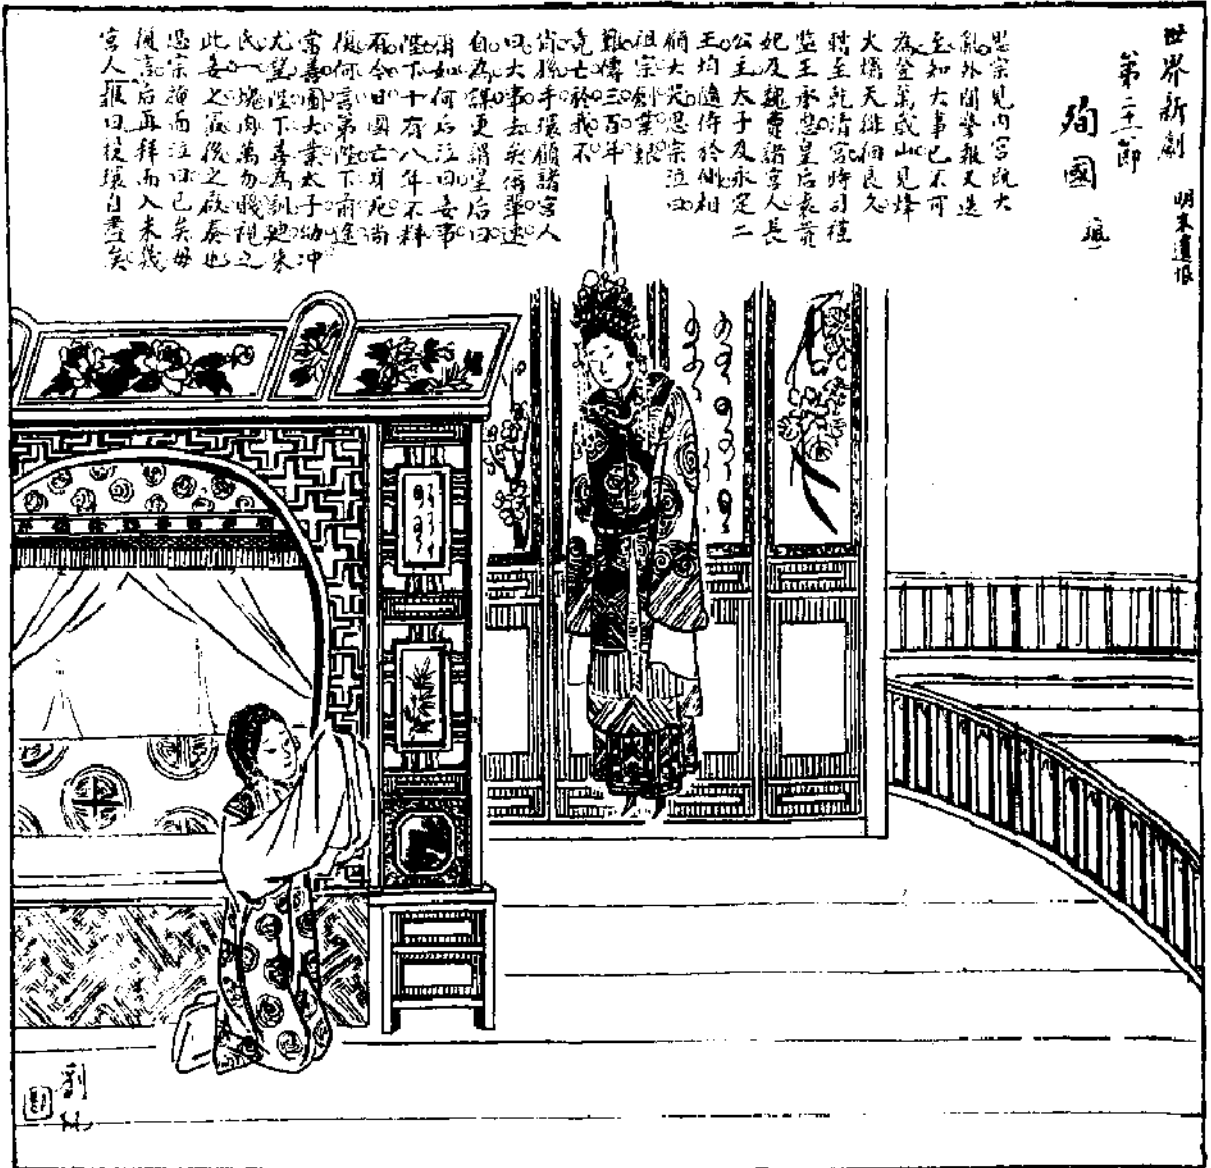 世界新劇
明末遺恨
第二十二節
殉國
思宗見內宮既大
亂外間警報又迭
至知大事已不可
為登萬歲山見烽
火燭天徘徊良久
踏至乾清宮時司禮
監王承恩皇后袁貴
妃及魏費諸宮人長
公主太子及永定二
王均隨侍於側相
顧大哭思宗泣曰
祖宗創業艱
難傳三百年
竟亡於我不
肖孫手環顧諸宮人
曰大事去矣爾輩速
自為謀更謂皇后曰
爾如何后泣曰妾事
陛下十有八年不料
有今日國亡身死尚
復何言第陛下前途
當善圖大業太子幼冲
尤望陛下善為訓迪朱
氏一塊肉萬勿賤視之
此妾之最後之啟奏也
思宗掩面泣曰已矣毋
復言后再拜而入未幾
宮人報曰投環自盡矣